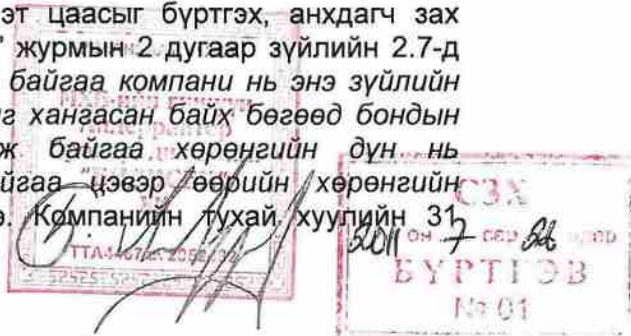 эт цаасыг бүртгэх, анхдагч зах
" журмын 2 дугаар зүйлийн 2.7-д
байгаа компани нь энэ зүйлийн
г хангасан байх бөгөөд бондын
ж байгаа хөрөнгийн дүн нь
йгаа цэвэр өөрийн хөрөнгийн
э. Компанийн тухай хуулийн 31
СЗХ
2011 он 7 сар 26 өдөр
БҮРТГЭВ
№ 01